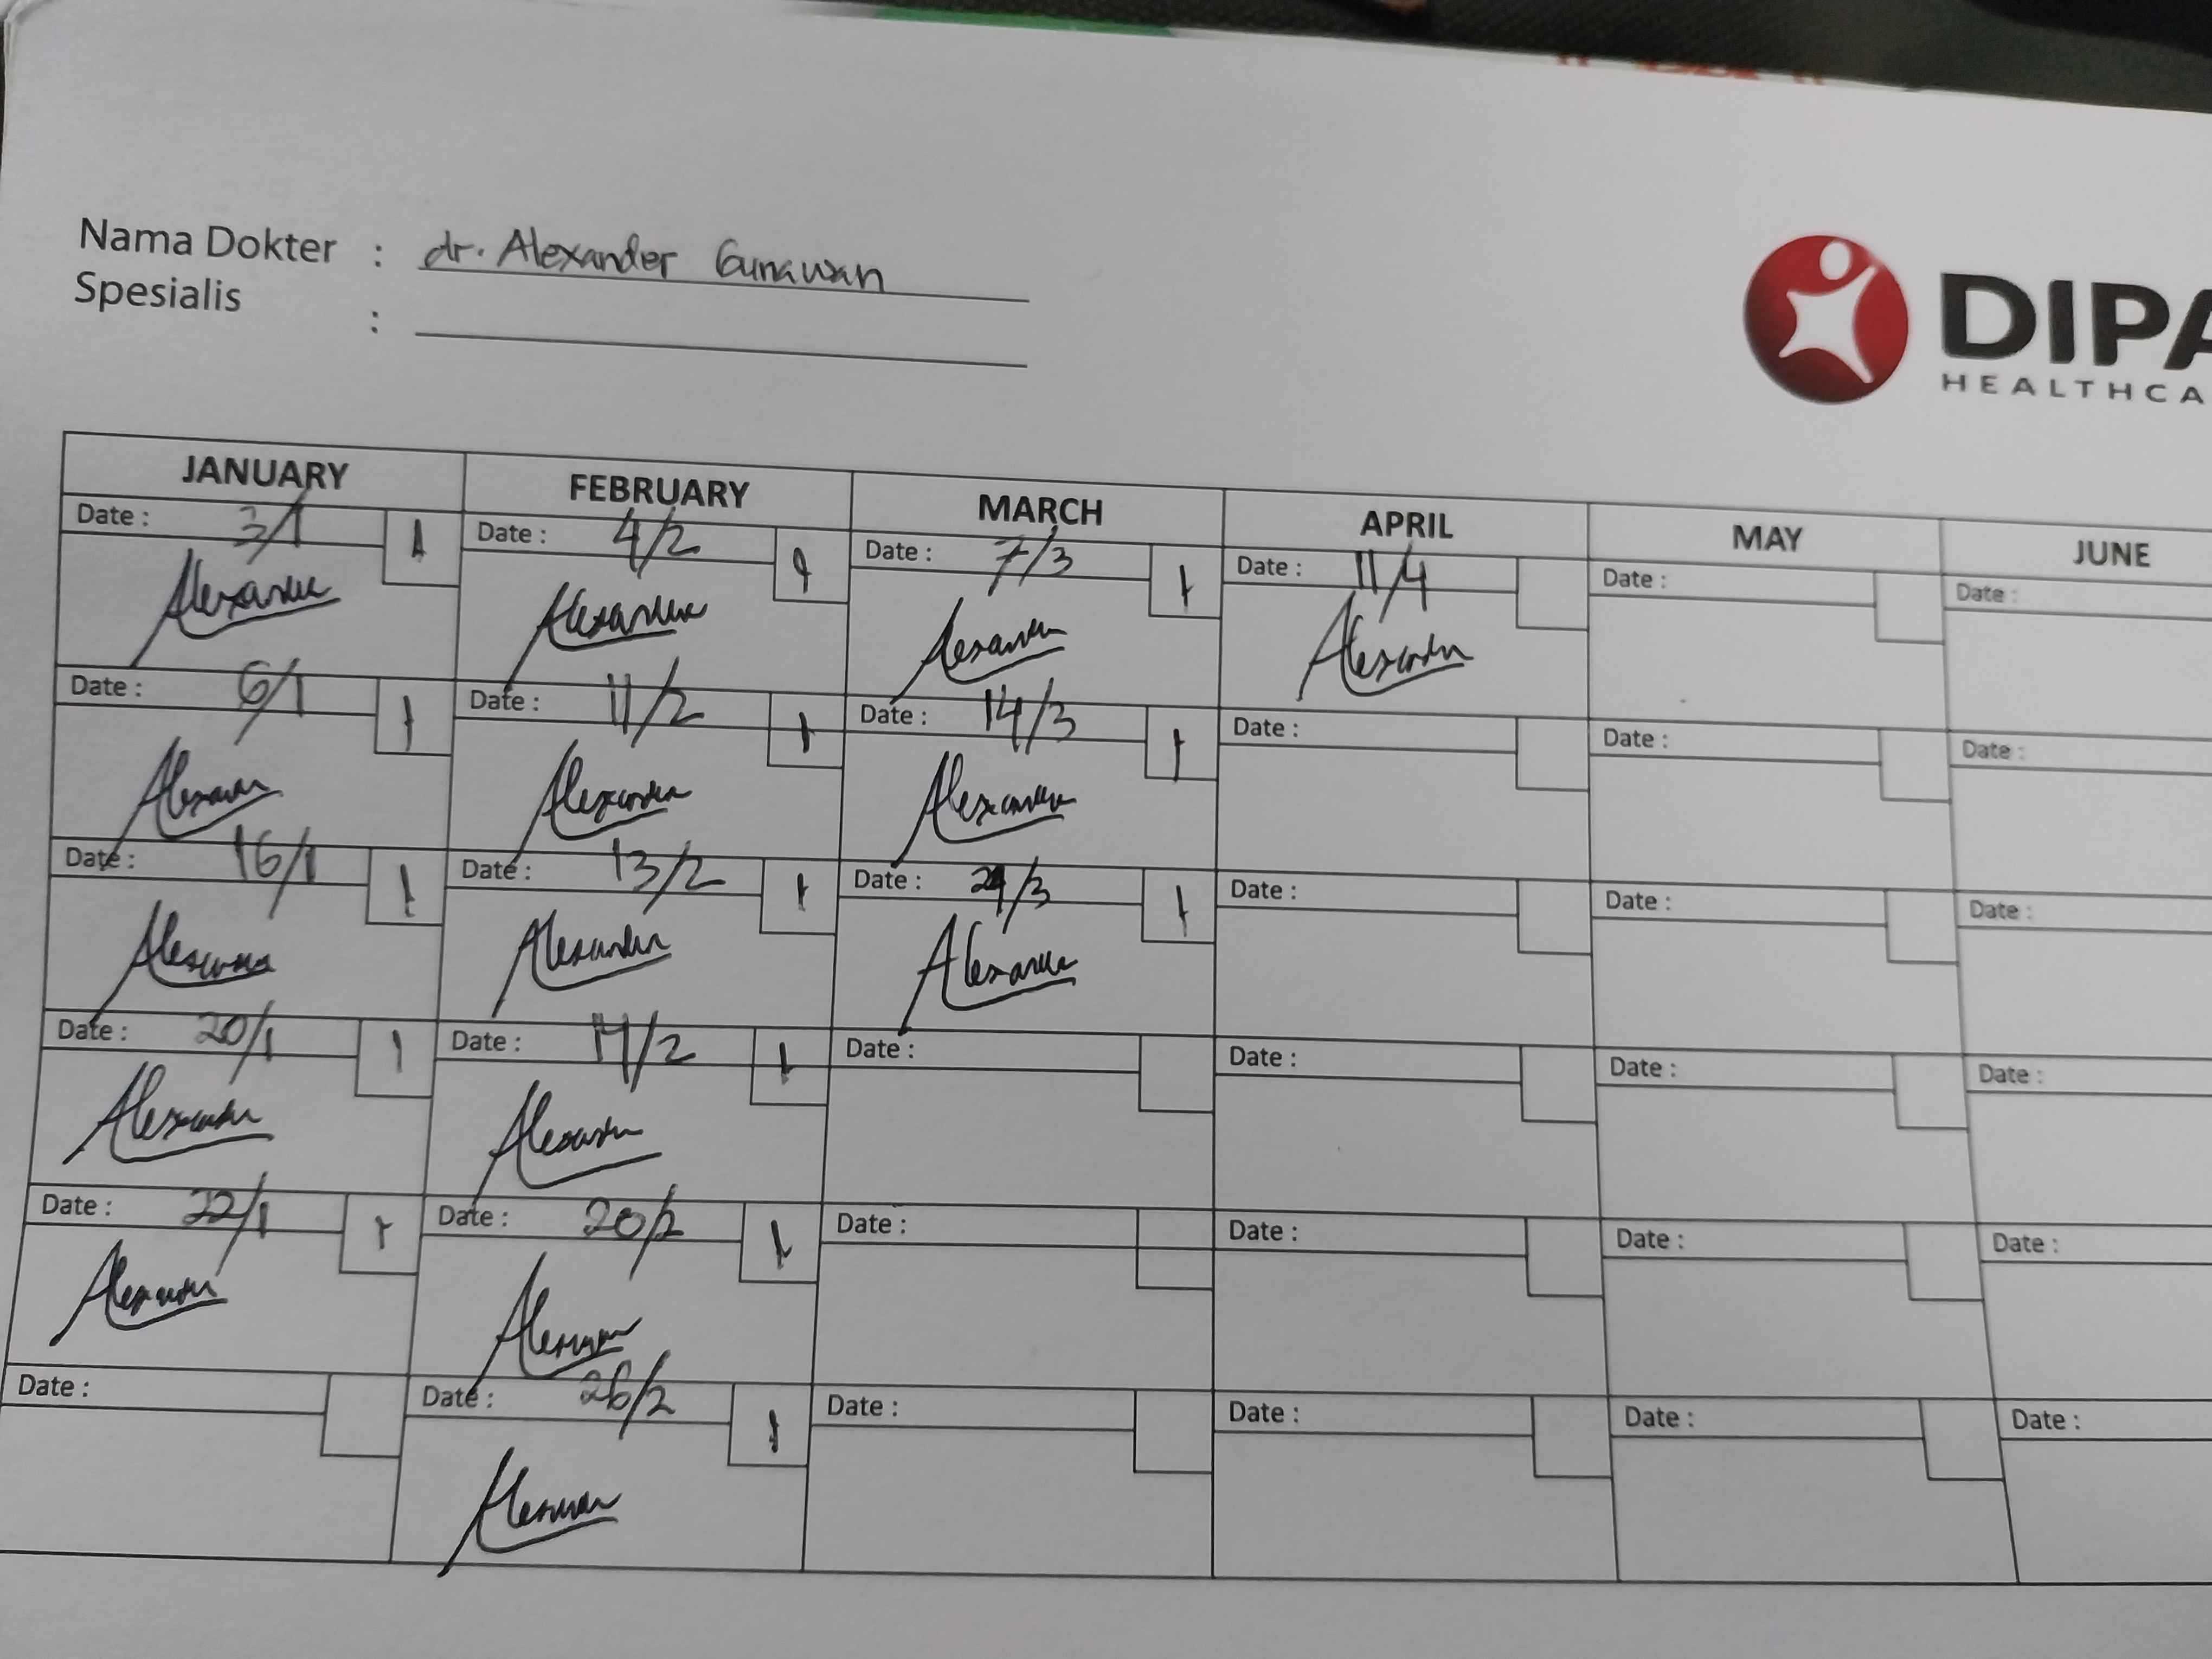 Nama Dokter : dr. Alexander Gunawan
Spesialis :
DIPA
HEALTHCA
JANUARY FEBRUARY MARCH APRIL MAY JUNE
Date : 3/1 1 Date : 4/2 1 Date : 7/3 1 Date : 11/4 Date : Date :
Alexander Alexander Alexander Alexander
Date : 6/1 1 Date : 11/2 1 Date : 14/3 1 Date : Date : Date :
Alexander Alexander Alexander
Date : 16/1 1 Date : 13/2 1 Date : /3 1 Date : Date : Date :
Alexander Alexander Alexander
Date : 20/1 1 Date : /2 1 Date : Date : Date : Date :
Alexander Alexander
Date : 22/1 1 Date : 20/2 1 Date : Date : Date : Date :
Alexander Alexander
Date : Date : 26/2 1 Date : Date : Date : Date :
Alexander